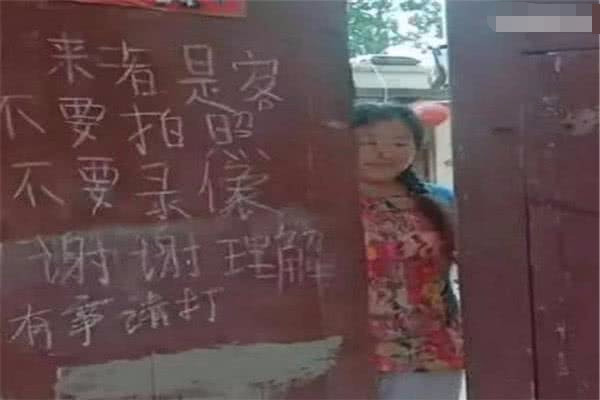 来者是客
不要拍照
不要录像
谢谢理解
有事请打